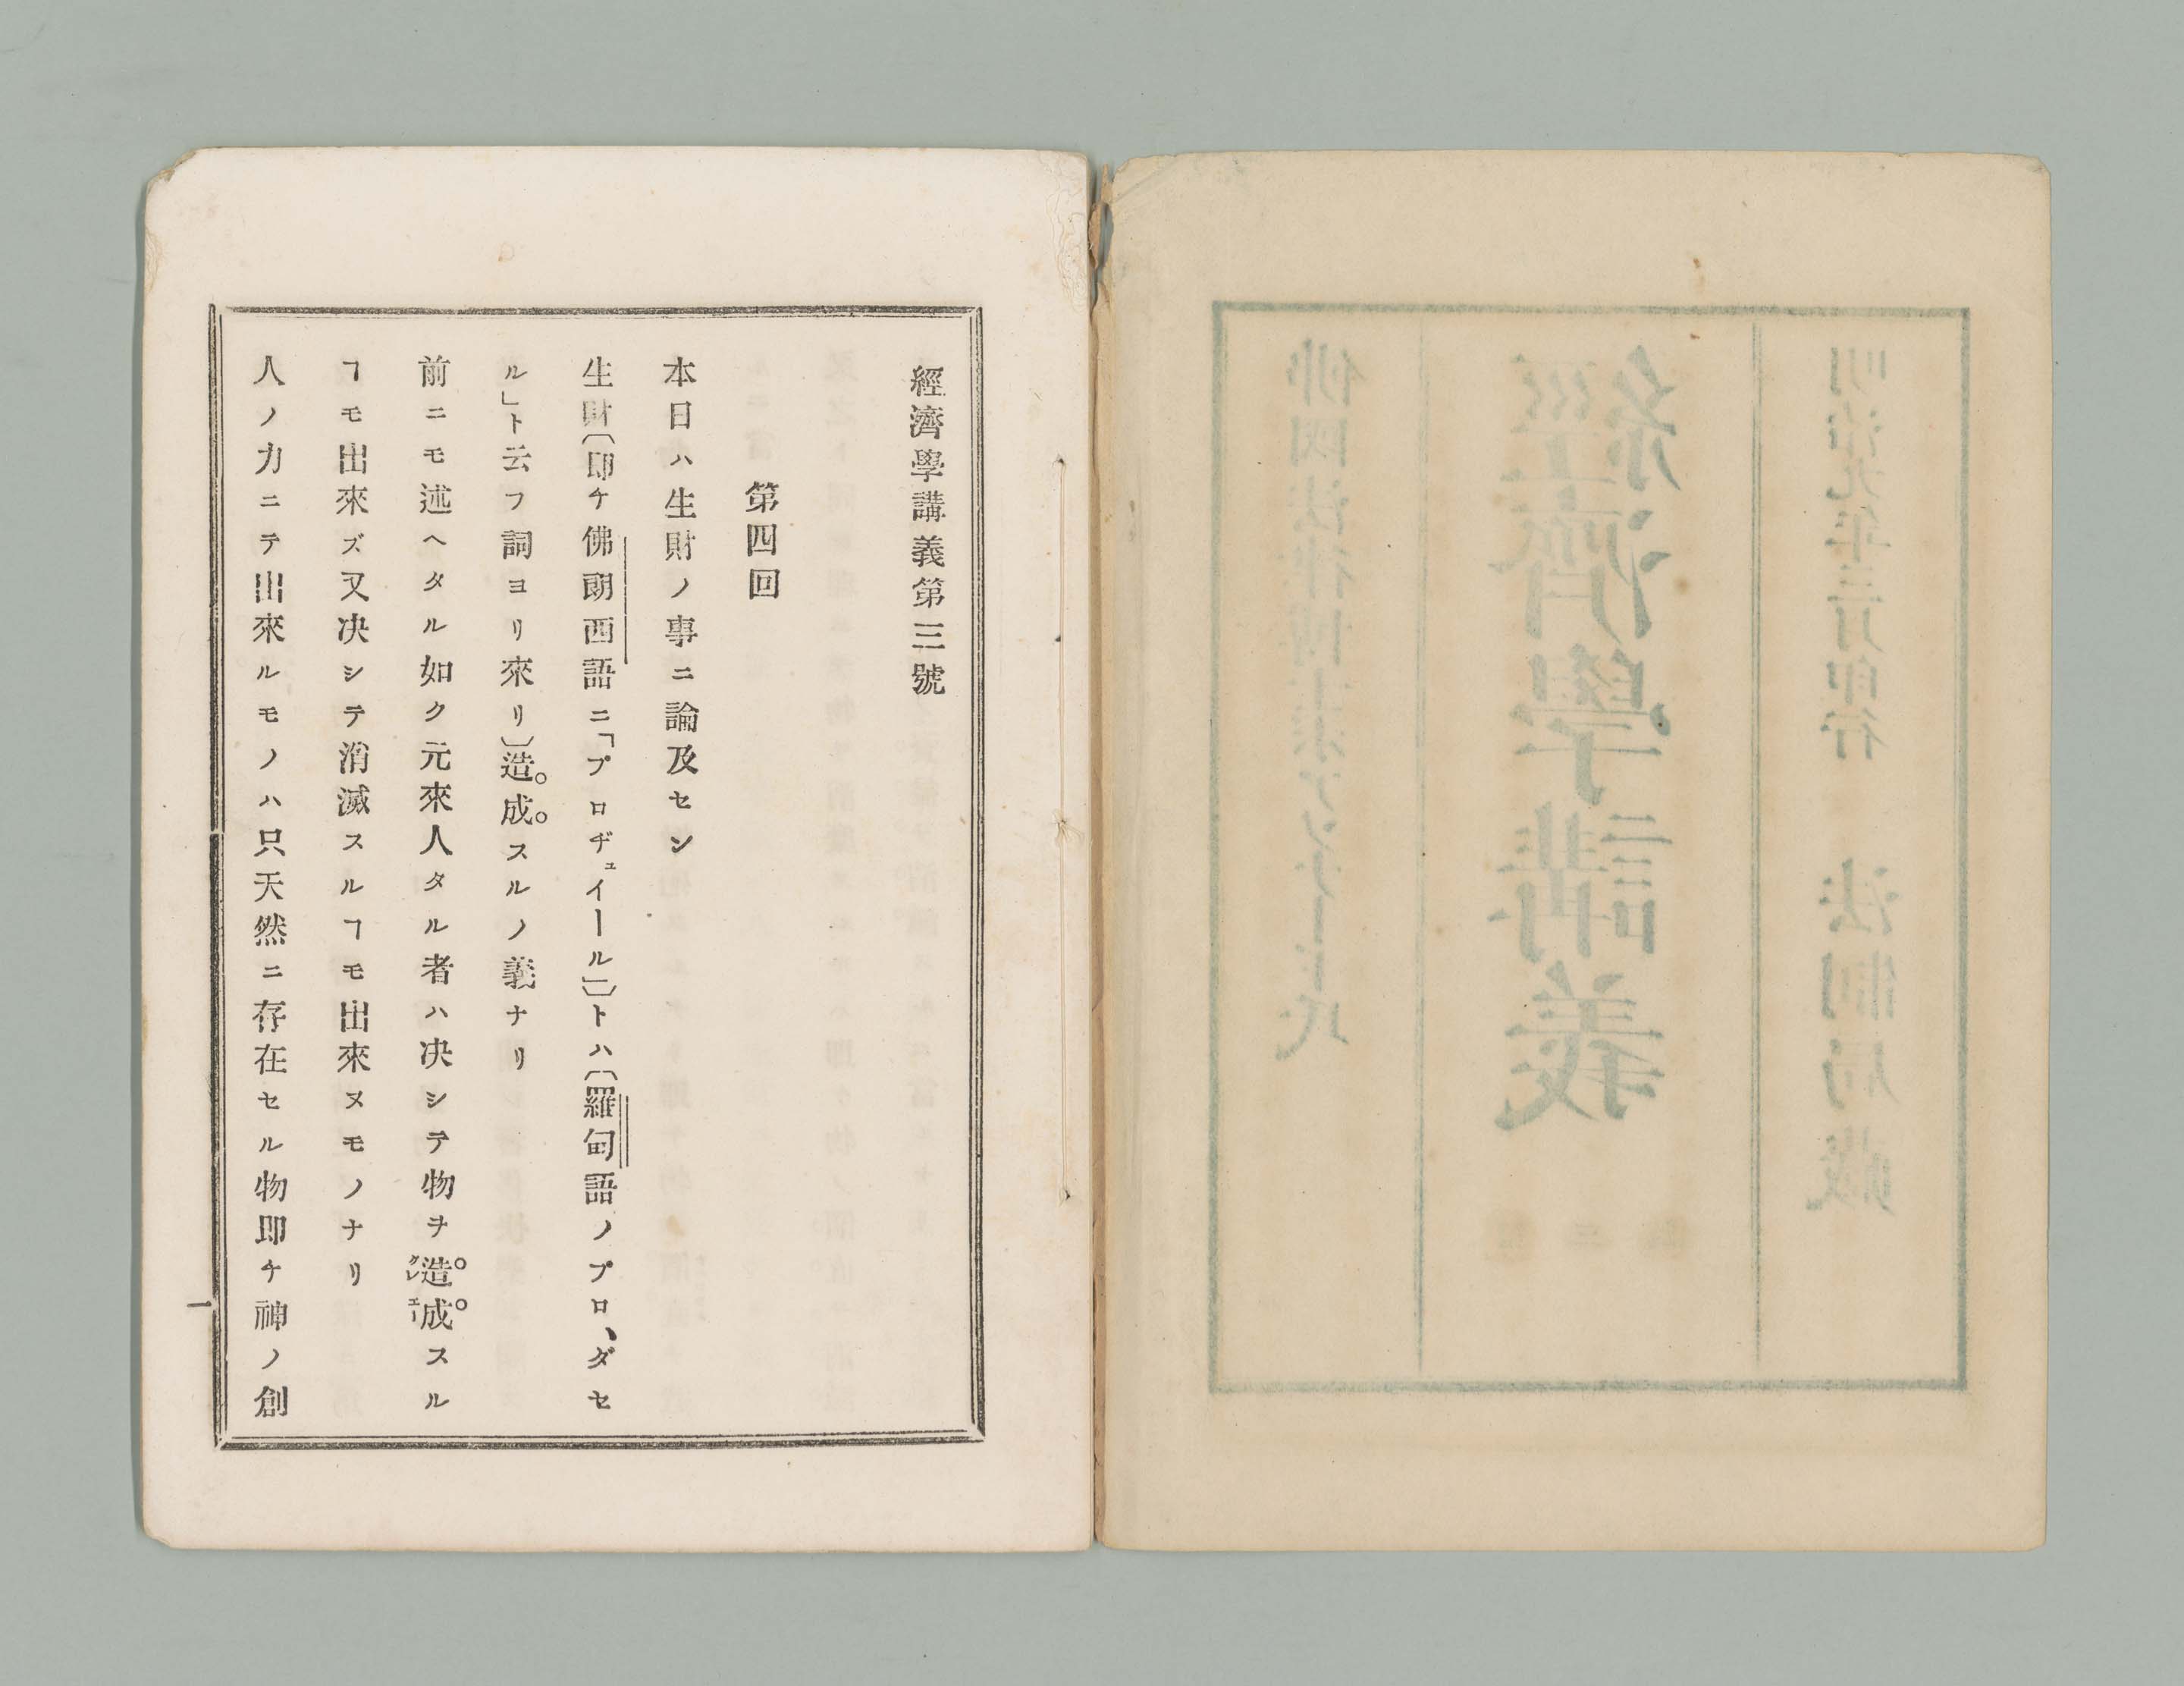 明治九年三月印行　法制局藏
經濟學講義
佛國法律博士
經濟學講義第三號
第四回
本日ハ生財ノ事ニ論及セン
生財〔卽チ佛朗西語ニ「プロヂュイール」〕トハ〔羅甸語ノプロ、ダセ
ル」ト云フ詞ヨリ來リ〕造成スルノ義ナリ
前ニモ述ヘタル如ク元來人タル者ハ决シテ物ヲ造成スル
クレエー
ヿモ出來ズ又决シテ消滅スルヿモ出來ヌモノナリ
人ノ力ニテ出來ルモノハ只天然ニ存在セル物卽チ神ノ創
一